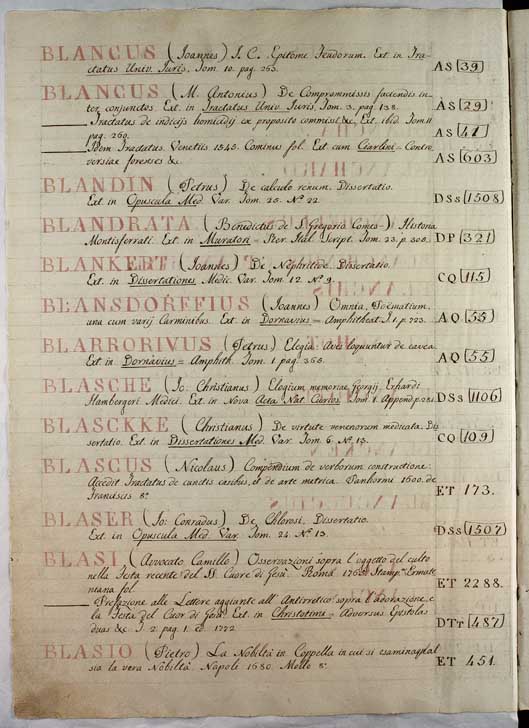 BLANCUS (Joannes) I. C. Epitome Feudorum. Ext. in Trac-
tatus Univ. Juris, Tom. 10. pag. 253. AS 39
BLANCUS (M. Antonius) De Compromissis faciendis in-
ter conjunctos Ext. in Tractatus Univ. Juris, Tom. 3. pag 138. AS 29
Tractatus de indicijs homicidij ex proposito commissi &c. Ext. ibid. Tom. 11
pag. 260. AS 41
Idem Tractatus. Venetiis 1545. Cominus fol. Ext. cum Ciarlini = Contro
versiae forenses &c AS 603
BLANDIN (Petrus) De calculo renum. Dissertatio.
Ext. in Opuscula Med. Var. Tom. 25. Nº 22. DSs 1508
BLANDRATA (Benedictus de S. Gregorio Comes) Historia
Montisferrati. Ext. in Muratori = Rer. Ital. Script. Tom. 23. p. 305. DP 321
BLANKERT (Joannes) De Nephritide. Dissertatio.
Ext. in Dissertationes Medic. Var. Tom 12. Nº 9. CQ 115
BLANSDORFFIUS (Joannes) Omnia. Poematium.
una cum varijs Carminibus. Ext. in Dornavius = Amphitheat. T. 1. p. 723. AQ 55
BLARRORIVUS (Petrus) Elegia: Aves loquuntur de cavea.
Ext. in Dornavius = Amphith. Tom. 1. pag. 365. AQ 55
BLASCHE (Jo. Christianus) Elogium memoriae Georgij Erhardi
Hambergeri Medici. Ext. in Nova Acta Nat. Curios. Tom. 1. Append. p. 281. DSs 1106
BLASCKKE (Christianus) De virtute venenorum medicata. Dis
sertatio. Ext. in Dissertationes Med. Var. Tom. 6. Nº 13. CQ 109
BLASCUS (Nicolaus) Compendium de verborum constructione:
Accedit Tractatus de cunctis casibus, et de arte metrica. Panhormi 1600. de
Franciscis 8º ET 173.
BLASER (Jo: Conradus) De Chlorosi. Dissertatio.
Ext. in Opuscula Med. Var. Tom. 24. Nº 13. DSs 1507
BLASI (Avvocato Camillo) Osservazioni sopra l'oggetto del culto
nella Festa recente del SS. Cuore di Gesù. Roma Stamp.
fol. ET 2288.
Prefazione alle Lettere aggiunte all' Antirretico sopra l'adorazione, e
la Festa del Cuor di Gesù. Ext. in Christotimi = Adversus Epistolas
duas &c T. 2. pag. 1. 1772. DTt 487
BLASIO (Pietro) La Nobiltà in Coppella in cui si esamina qual
sia la vera Nobiltà. Napole 1680. Mollo 8º ET 451.